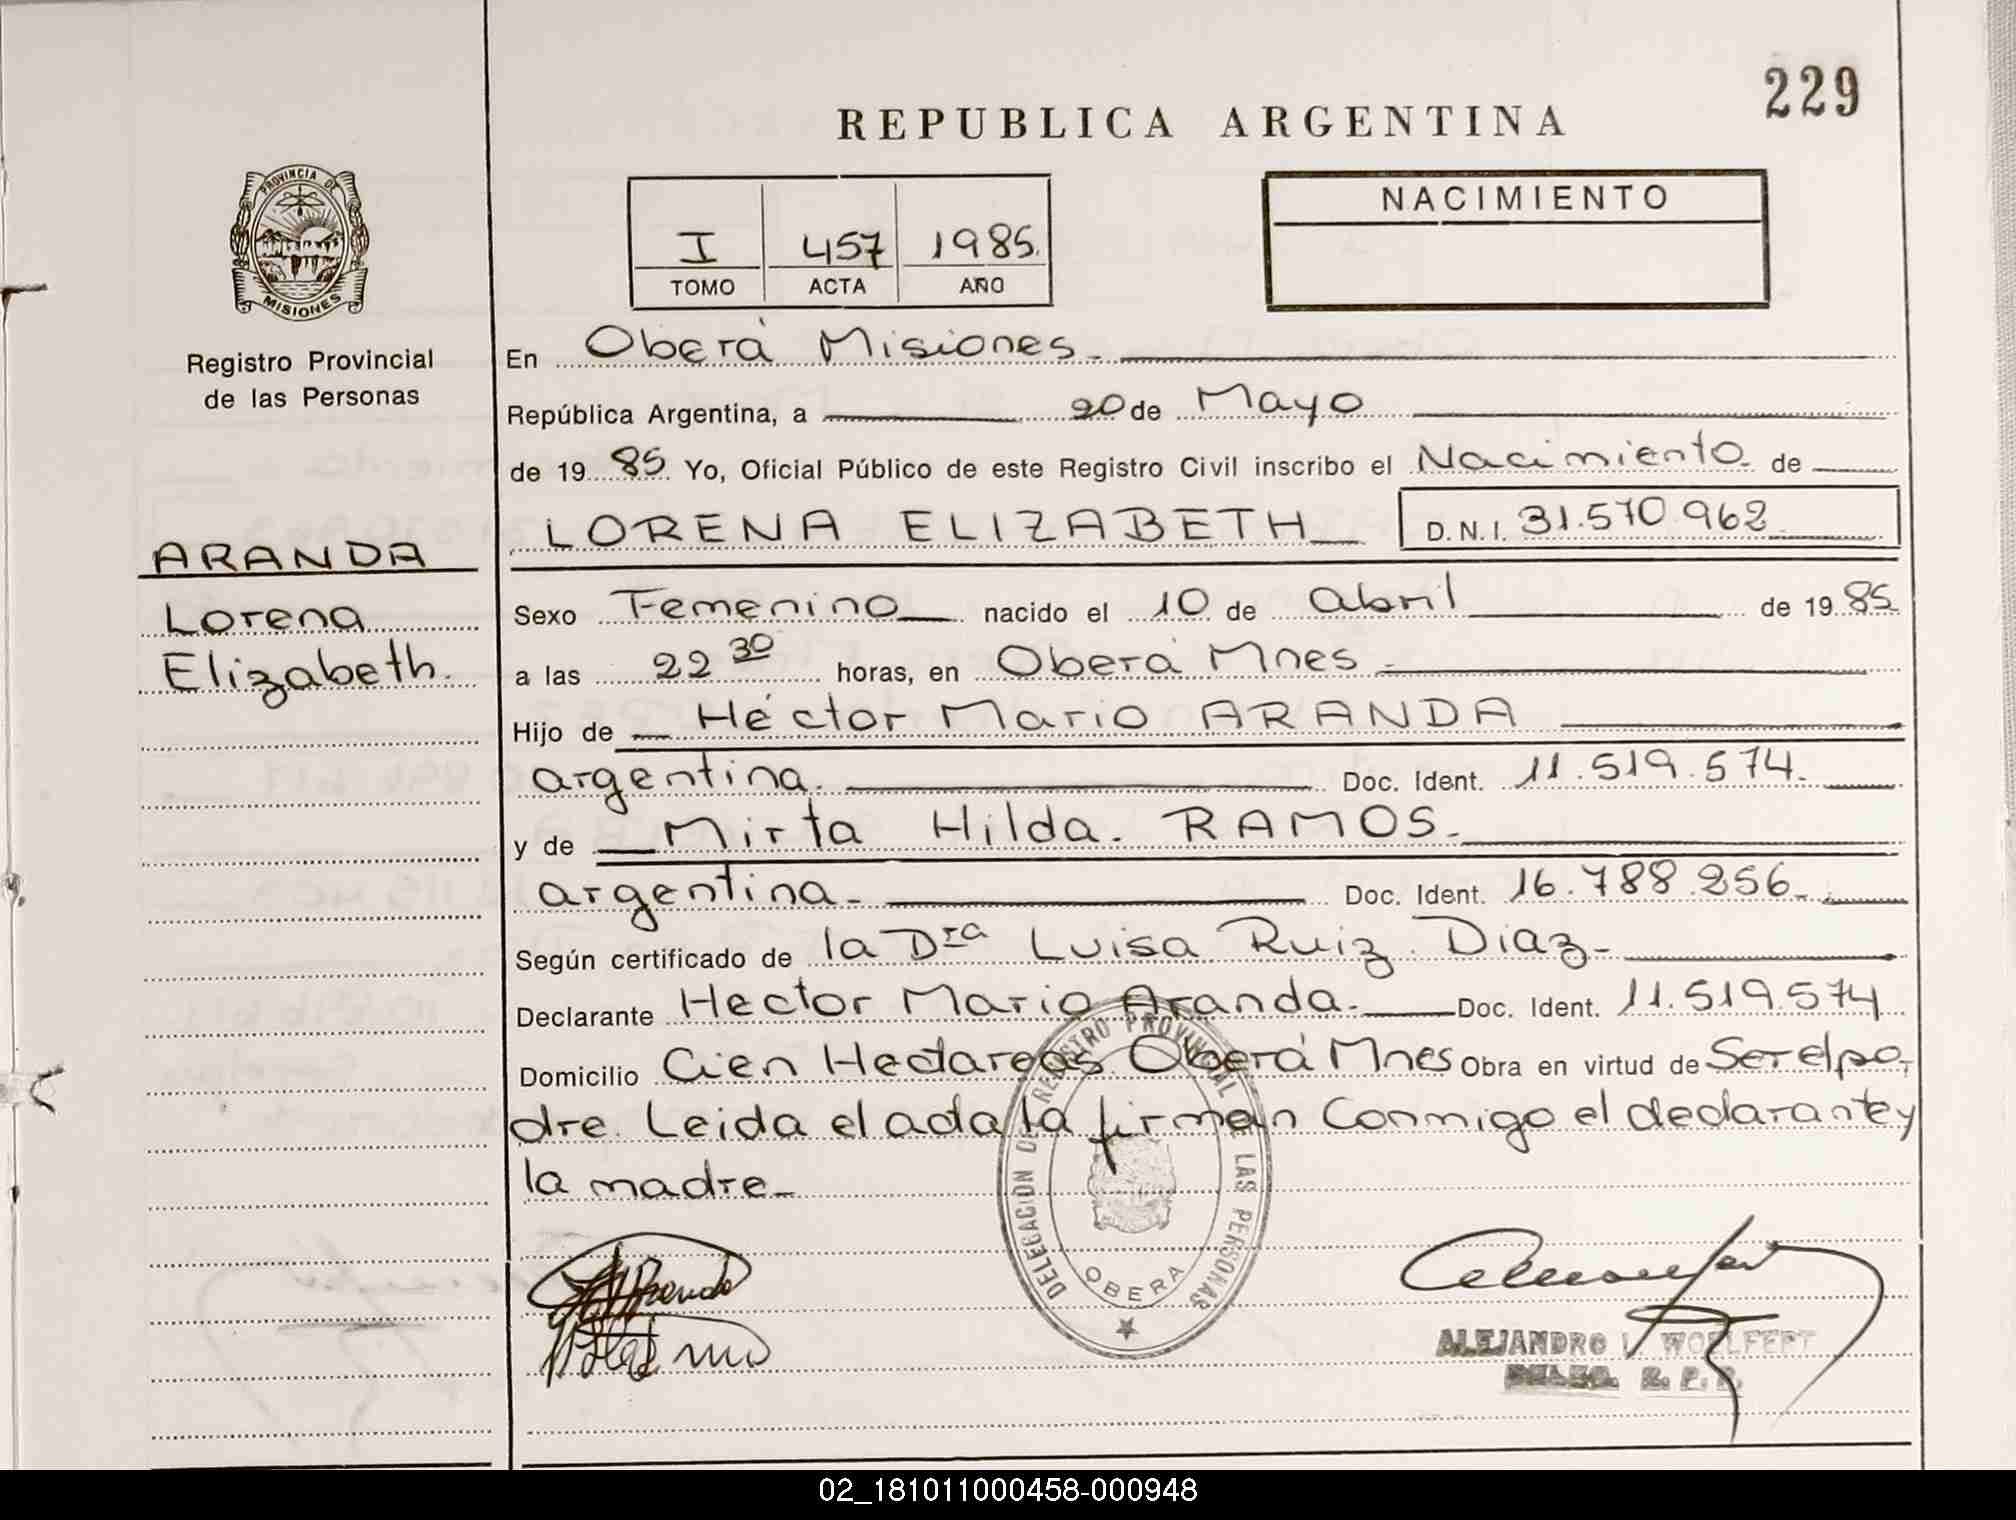 229
REPUBLICA ARGENTINA
PROVINCIA DE
MISIONES
Registro Provincial
de las Personas
I 457 1985.
TOMO ACTA AÑO
NACIMIENTO
En Oberá Misiones.
República Argentina, a 20 de Mayo
de 19 85 Yo, Oficial Público de este Registro Civil inscribo el Nacimiento. de
LORENA ELIZABETH D.N.I. 31.570.962
ARANDA
Lorena
Elizabeth.
Sexo Femenino nacido el 10 de Abril de 19 85
a las 22 30 horas, en Oberá Mnes.
Hijo de Héctor Mario ARANDA
argentina. Doc. Ident. 11.519.574.
y de Mirta Hilda. RAMOS.
argentina. Doc. Ident. 16.788.256.
Según certificado de la Dra Luisa Ruiz Diaz.
Declarante Hector Mario Aranda. Doc. Ident. 11.519.574
Domicilio Cien Hectareas Oberá Mnes Obra en virtud de Ser el pa-
dre. Leida el acta la firman Conmigo el declarante y
la madre.
DELEGACION DE REGISTRO PROVINCIAL DE LAS PERSONAS
OBERA
ALEJANDRO WOELFERT
DELEG. R. P. P.
02_181011000458-000948